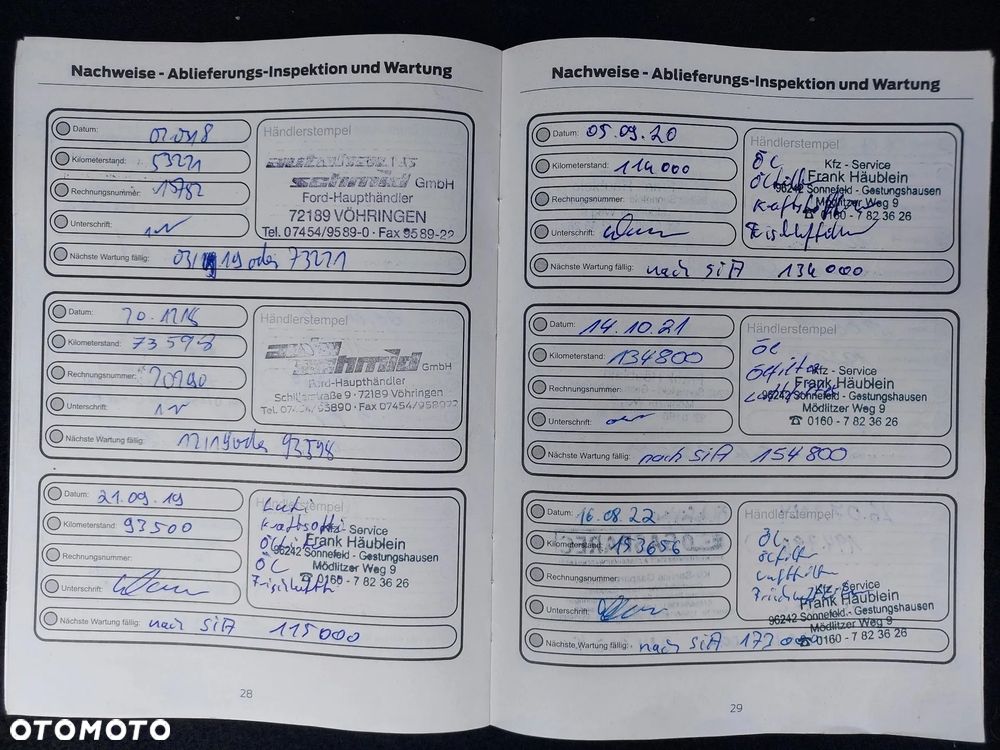 Nachweise - Ablieferungs-Inspektion und Wartung
Datum:
Händlerstempel
Kilometerstand: 53271
Rechnungsnummer: 15782
GmbH
Ford-Haupthändler
72189 VÖHRINGEN
Tel. 07454/9589-0 · Fax 9589-22
Unterschrift:
Nächste Wartung fällig: 19 oder 73271
Datum: 20.1218
Händlerstempel
Kilometerstand: 73598
GmbH
Ford-Haupthändler
Rechnungsnummer: 20290
72189 Vöhringen
Unterschrift:
Nächste Wartung fällig: 12/19 oder 93598
Datum: 21.09.19
Händlerstempel
Kilometerstand: 93500
Kfz - Service
Frank Häublein
96242 Sonnefeld - Gestungshausen
ÖL
Mödlitzer Weg 9
0160 - 7 82 36 26
Rechnungsnummer:
Unterschrift:
Nächste Wartung fällig: nach SIA 115000
28
Nachweise - Ablieferungs-Inspektion und Wartung
Datum: 05.09.20
Händlerstempel
ÖL
Kilometerstand: 114000
Kfz - Service
Frank Häublein
96242 Sonnefeld - Gestungshausen
Mödlitzer Weg 9
☎ 0160 - 7 82 36 26
Rechnungsnummer:
Unterschrift:
Nächste Wartung fällig: nach SIA 134000
Datum: 14.10.21
Händlerstempel
ÖL
Kilometerstand: 134800
Ölfilter
Kfz - Service
Frank Häublein
96242 Sonnefeld - Gestungshausen
Mödlitzer Weg 9
☎ 0160 - 7 82 36 26
Rechnungsnummer:
Unterschrift:
Nächste Wartung fällig: nach SIA 154800
Datum: 16.08.22
Händlerstempel
ÖL
Kilometerstand: 153656
Kfz - Service
Frank Häublein
96242 Sonnefeld - Gestungshausen
Mödlitzer Weg 9
☎ 0160 - 7 82 36 26
Rechnungsnummer:
Unterschrift:
Nächste Wartung fällig: nach SIA 173000
29
OTOMOTO